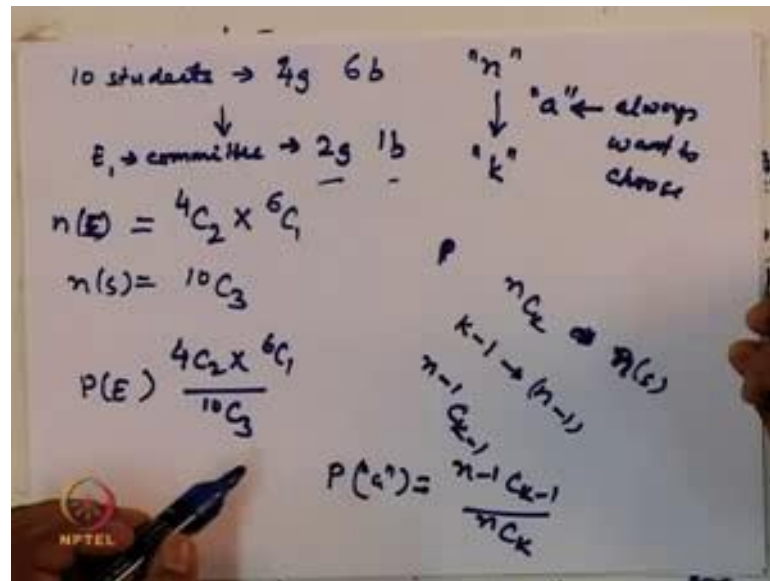 10 students → 4g 6b
↓
E₁ → committee → 2g 1b
n(E) = ⁴C₂ × ⁶C₁
n(s) = ¹⁰C₃
P(E) ⁴C₂ × ⁶C₁
¹⁰C₃
"n"
↓ "a" ← always
"k" want to
choose
P
ⁿCₖ n(s)
k-1 → (n-1)
ⁿ⁻¹Cₖ₋₁
P("a") = ⁿ⁻¹Cₖ₋₁
ⁿCₖ
NPTEL